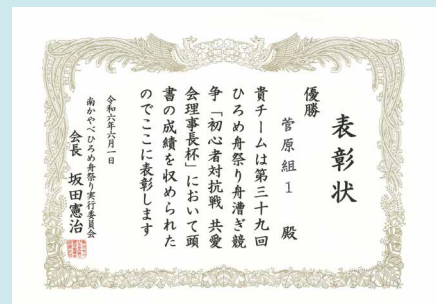 表彰状
優勝
菅原組1 殿
貴チームは第三十九回
ひろめ舟祭り舟漕ぎ競
争「初心者対抗戦 共愛
会理事長杯」において頭
書の成績を収められた
のでここに表彰します
令和六年六月一日
南かやべひろめ舟祭り実行委員会
会長 坂田憲治